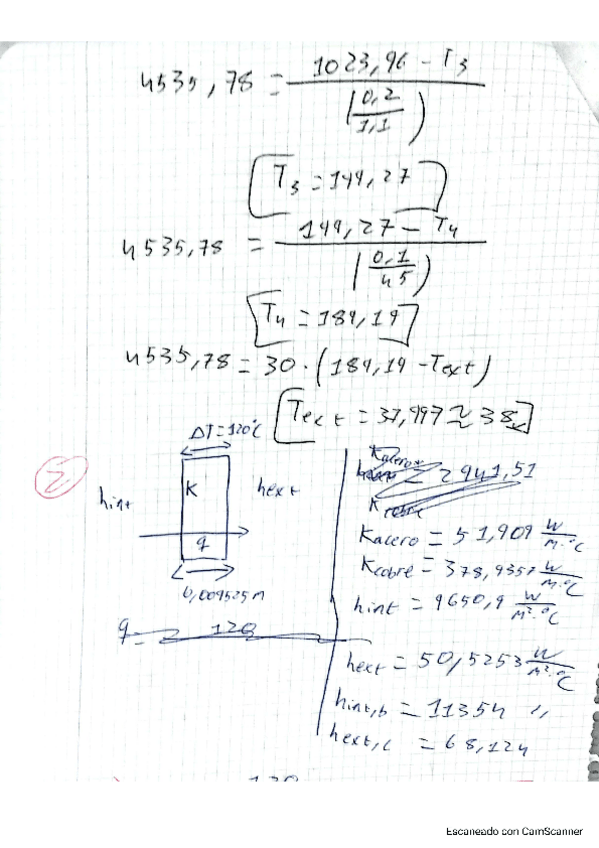 4535,78 = 1023,96 - T3 / (0,2 / 1,1)
T3 = 199,27
4535,78 = 199,27 - T4 / (0,1 / 45)
T4 = 189,19
4535,78 = 30 · (189,19 - Text)
Text = 37,997 ≈ 38
2
ΔT = 120°C
hint
K
hext
q
0,009525 m
q = 120
Kacero = 2941,51
Kcobre
Kacero = 51,909 W/m·°C
Kcobre = 378,9357 W/m·°C
hint = 9650,9 W/m²·°C
hext = 50,5253 W/m²·°C
hint,b = 11354 ,,
hext,c = 68,124
Escaneado con CamScanner